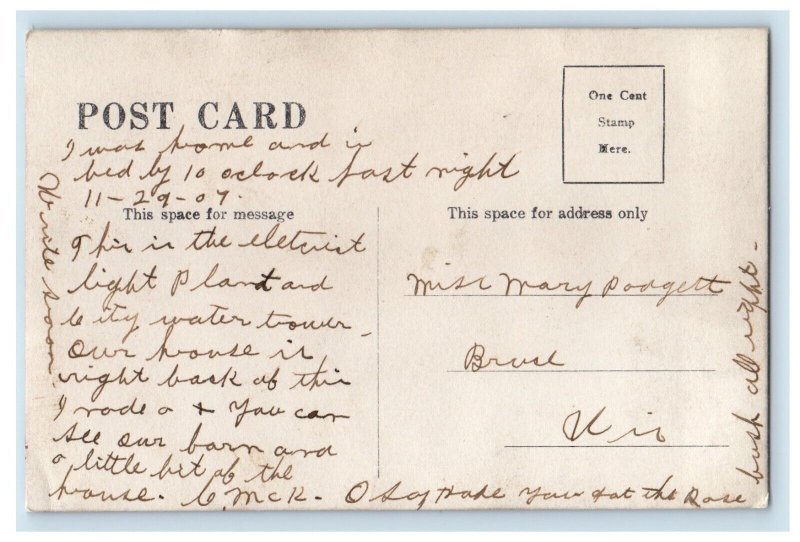 POST CARD
One Cent
Stamp
Here.
I was home and in
bed by 10 oclock last night
11-29-07.
This space for message
This space for address only
This is the eletrict
light Plant and
City water tower
Our house is
right back of this
I rode a + You can
see our barn and
a little bit of the
house. C. McK. O say hope you got the Rose
bush all right
Write soon
Miss Mary Podgett
Bruce
Wis